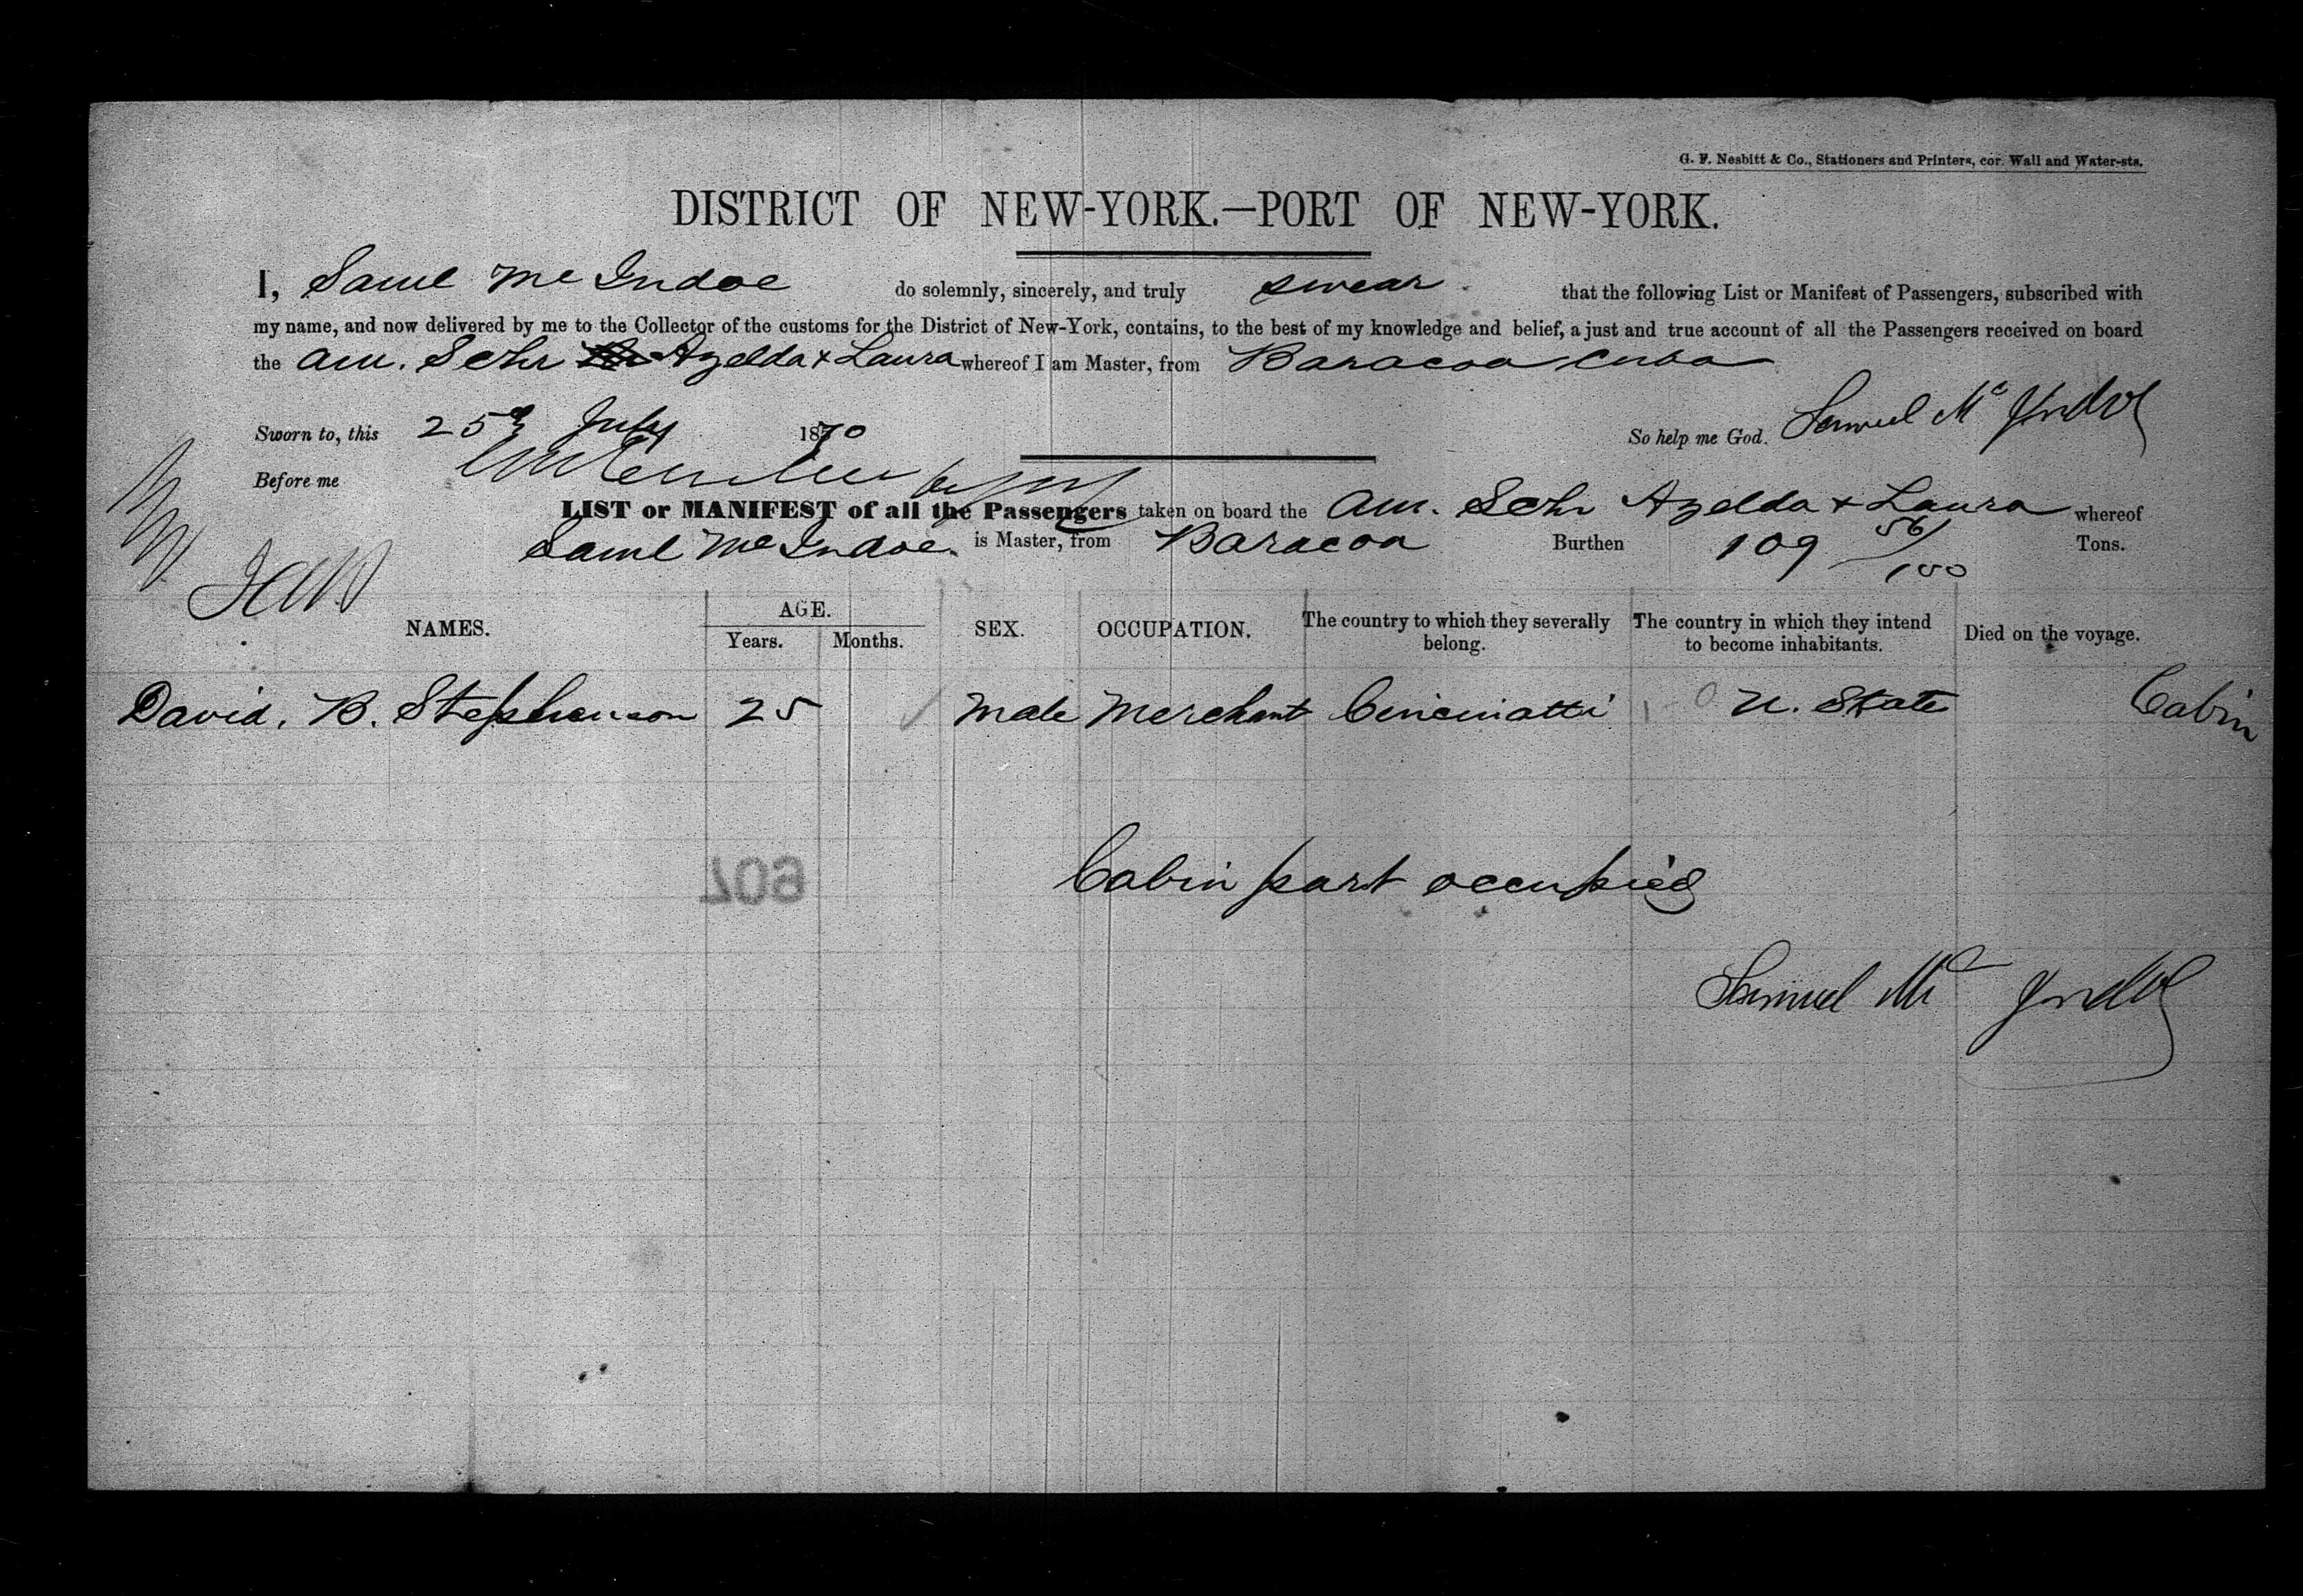 G. F. Nesbitt & Co., Stationers and Printers, cor. Wall and Water-sts.
DISTRICT OF NEW-YORK.—PORT OF NEW-YORK.
I, Saml Mc Indoe do solemnly, sincerely, and truly swear that the following List or Manifest of Passengers, subscribed with
my name, and now delivered by me to the Collector of the customs for the District of New-York, contains, to the best of my knowledge and belief, a just and true account of all the Passengers received on board
the Am. Schr Azelda & Laura whereof I am Master, from Baracoa Cuba
Sworn to, this 25 July 1870 So help me God. Samuel Mc Indoe
Before me
LIST or MANIFEST of all the Passengers taken on board the Am. Schr Azelda & Laura whereof
Saml Mc Indoe is Master, from Baracoa Burthen 109 56/100 Tons.
NAMES. AGE. Years. Months. SEX. OCCUPATION. The country to which they severally belong. The country in which they intend to become inhabitants. Died on the voyage.
David. B. Stephenson 25 Male Merchant Cincinatti U. State Cabin
607
Cabin part occupied
Samuel Mc Indoe